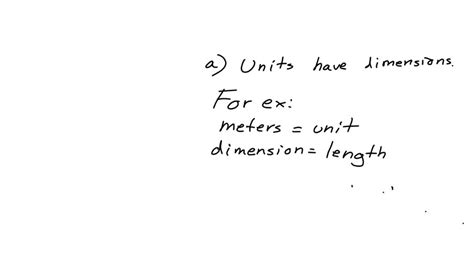 a) Units have dimensions.
For ex:
meters = unit
dimension = length